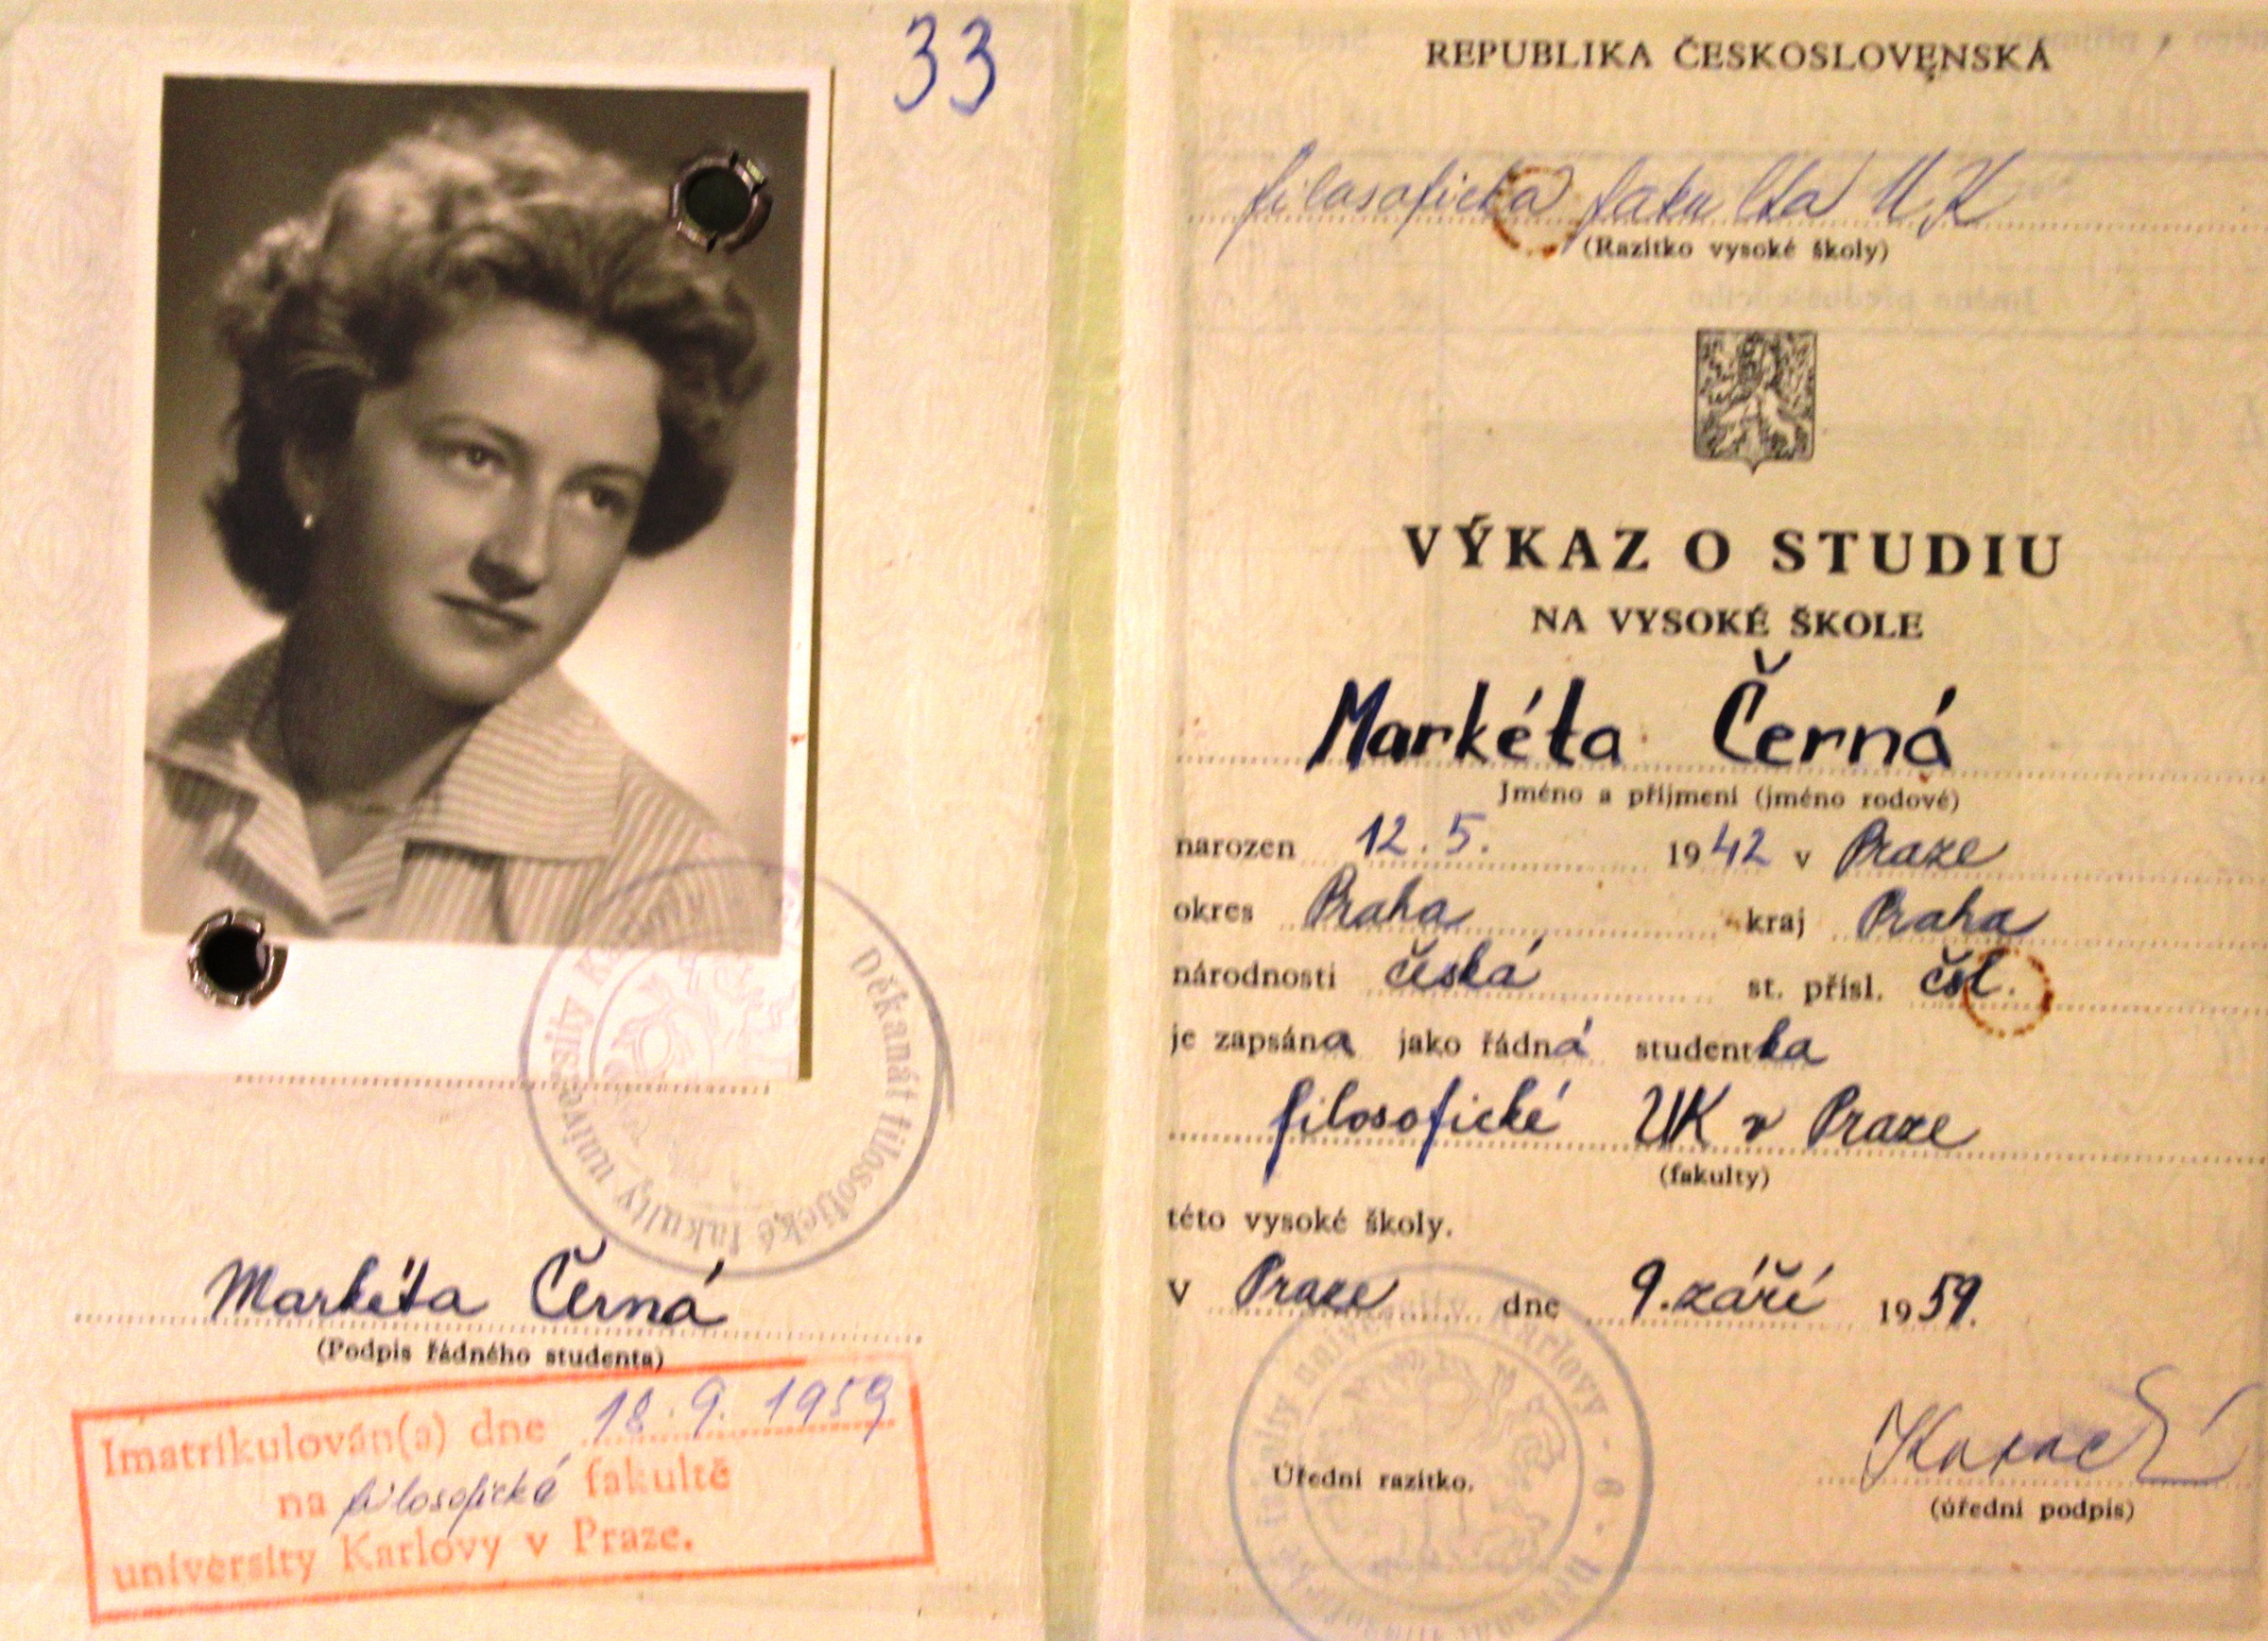 33
Děkanát filosofické fakulty university Karlovy
Markéta Černá
(Podpis řádného studenta)
Imatrikulován(a) dne 18.9.1959
na filosofické fakultě
university Karlovy v Praze.
REPUBLIKA ČESKOSLOVENSKÁ
filosofická fakulta UK
(Razítko vysoké školy)
VÝKAZ O STUDIU
NA VYSOKÉ ŠKOLE
Markéta Černá
Jméno a příjmení (jméno rodové)
narozen 12.5. 1942 v Praze
okres Praha kraj Praha
národnosti česká st. přísl. čsl.
je zapsána jako řádná studentka
filosofické UK v Praze
(fakulty)
této vysoké školy.
V Praze dne 9. září 1959.
Úřední razítko.
(úřední podpis)